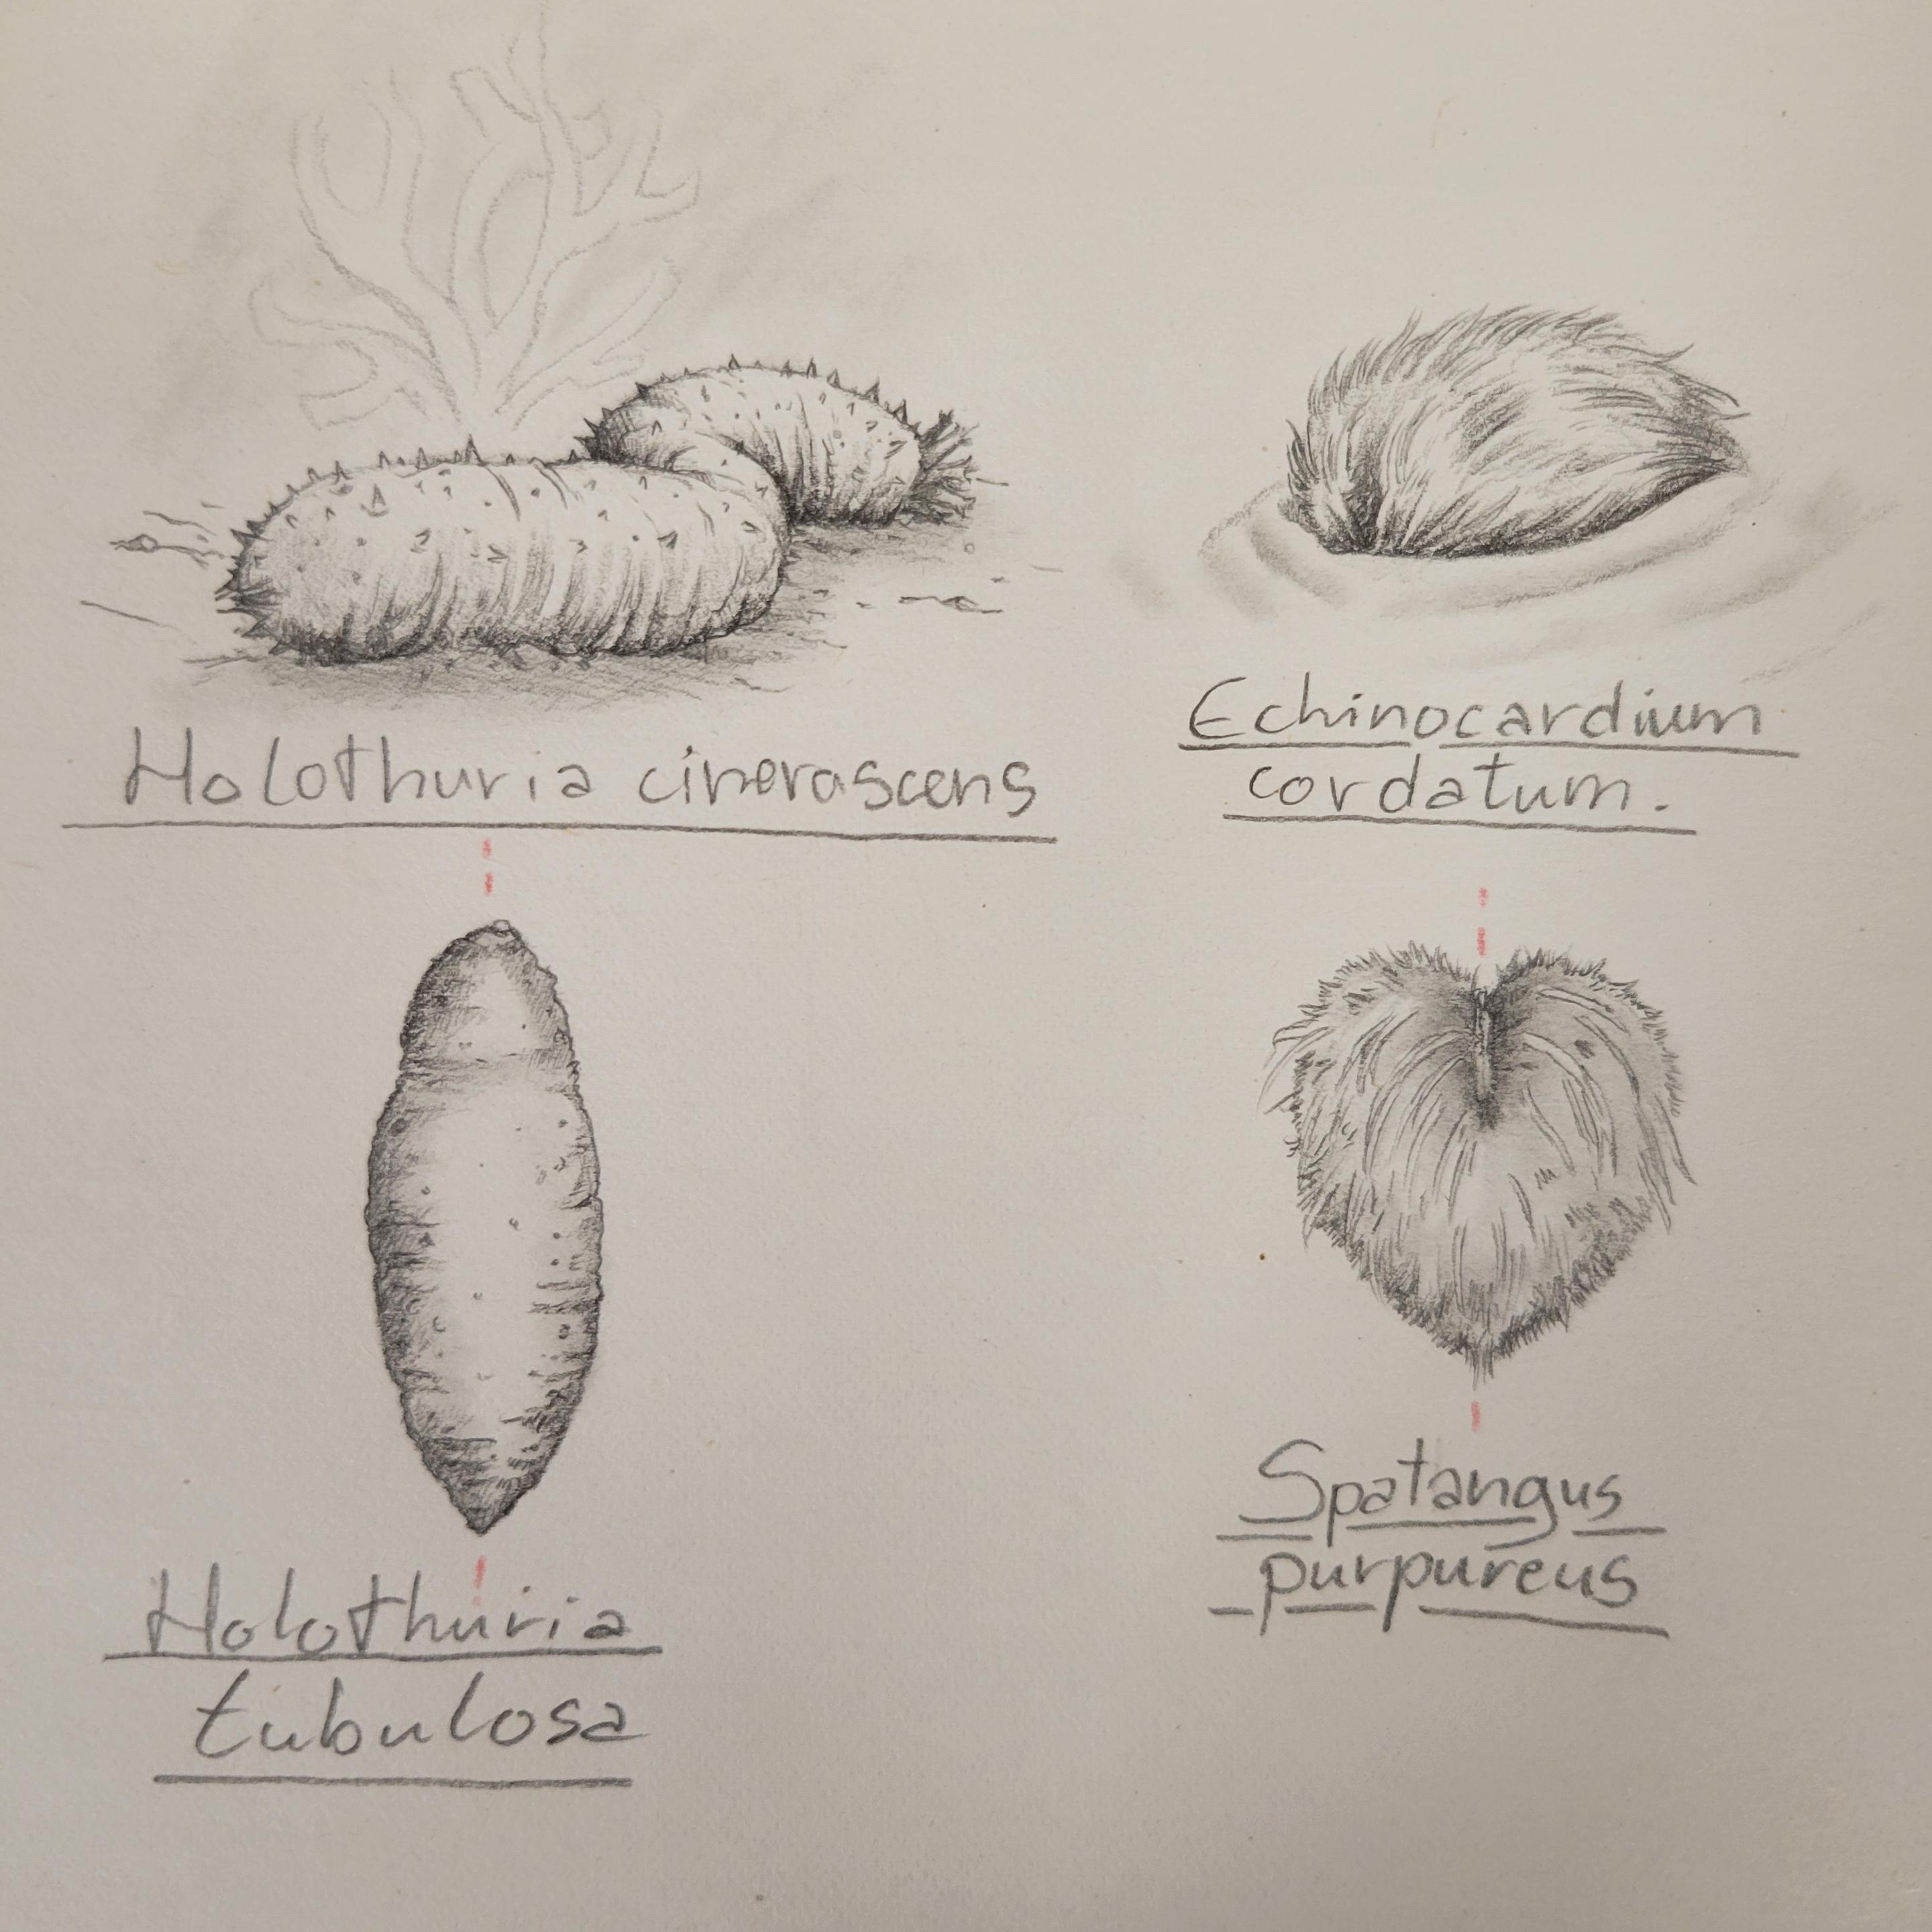 Holothuria cinerascens
Echinocardium
cordatum.
Holothuria
tubulosa
Spatangus
purpureus